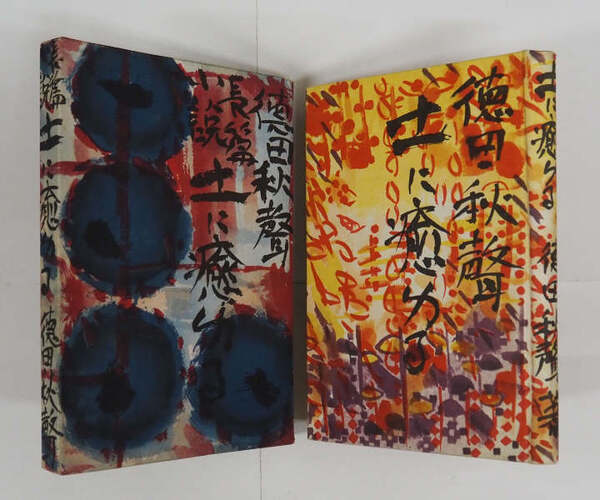 長篇 土に癒ゆる 徳田秋聲
徳田秋聲
長篇
小説
土に癒ゆる
徳田秋聲
土に癒ゆる
土に癒ゆる 徳田秋聲